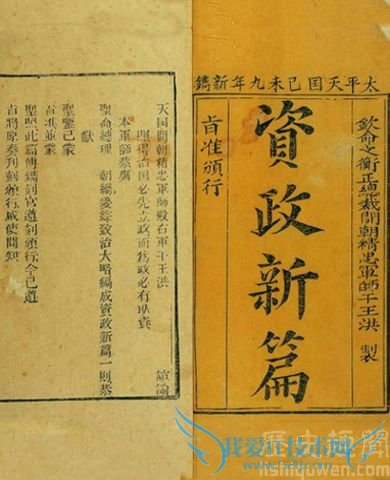 太平天囯己未九年新鐫
欽命文衡正總裁開朝精忠軍師干王洪 製
資政新篇
旨准頒行
天囯開朝精忠軍師殿右軍干王洪 諠諭
照得治囯必先立政而為政必有取資
本軍師恭膺
聖命總理 朝綱爰綜致治大略編成資政新篇一則恭
獻
聖鑒已蒙
旨准並蒙
聖照此篇傳鐫刻官遵刻頒行今已遵
旨將原奏刊刻頒行咸使聞知
我爱IT技术网
lishiquwen.com